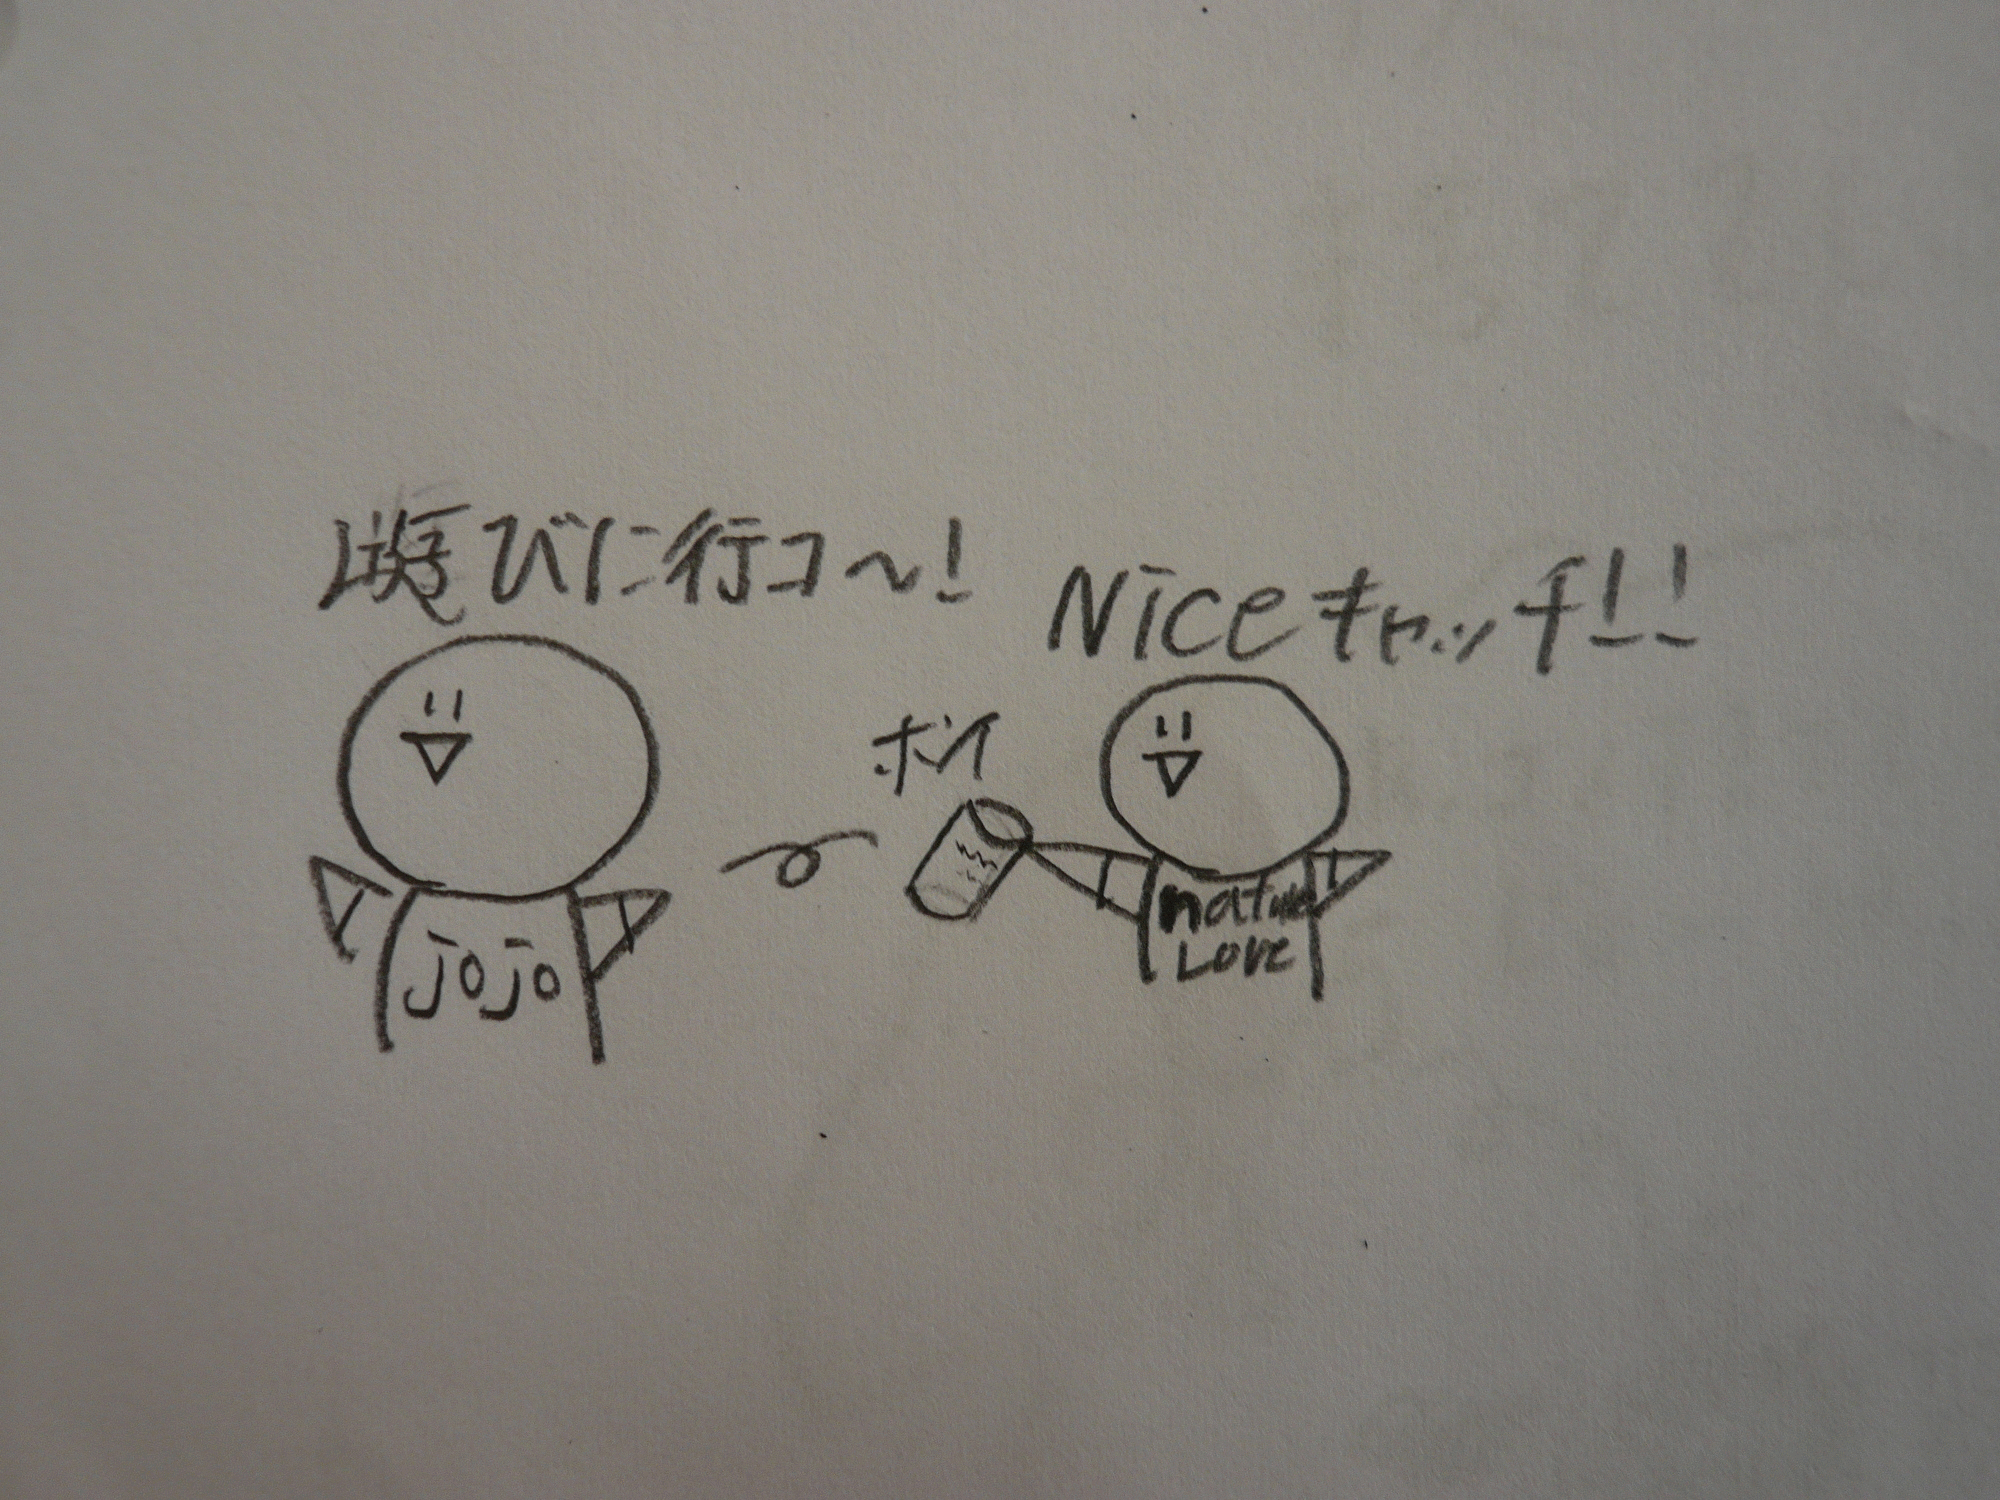 遊びに行コ〜!
Niceキャッチ!!
ポイ
jojo
nature
Love